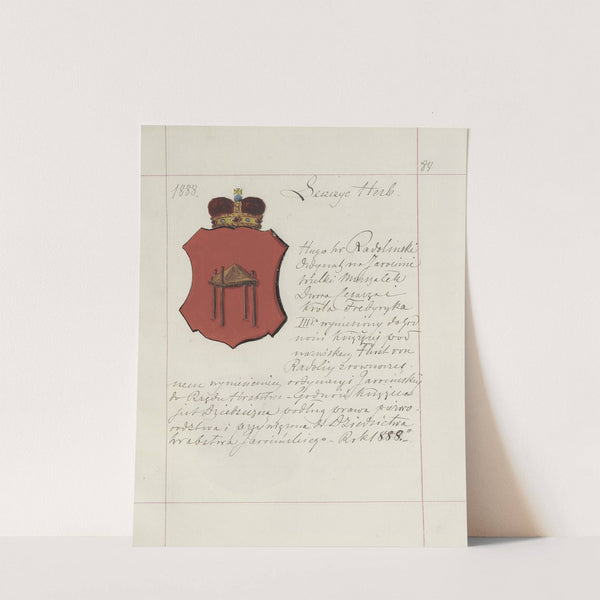 88
1888.
Leszczyc Herb.
Hugo hr Radolinski
Ordynat na Jarocinie
Wielki Marszałek
Dworu Cesarza i
Króla Fryderyka
III wyniesiony do god
ności Książęcej pod
nazwiskiem Fürst von
Radolin z równoczes
nem wyniesieniem ordynacyi Jarocinskiej
do Rzędu Hrabstwa - Godność Książęca
jest Dziedziczna podług prawa pierwo
rodztwa i przywiązana do Dziedzictwa
hrabstwa Jarocinskiego - Rok 1888."